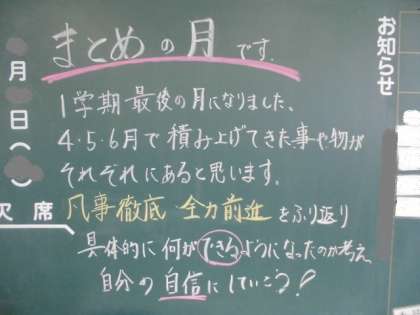 まとめの月です.
1学期最後の月になりました、
4・5・6月で積み上げてきた事や物が
それぞれにあると思います。
凡事徹底 全力前進をふり返り
具体的に何ができるようになったのか考え
自分の自信にしていこう!
お知らせ
月
日(
)
欠席